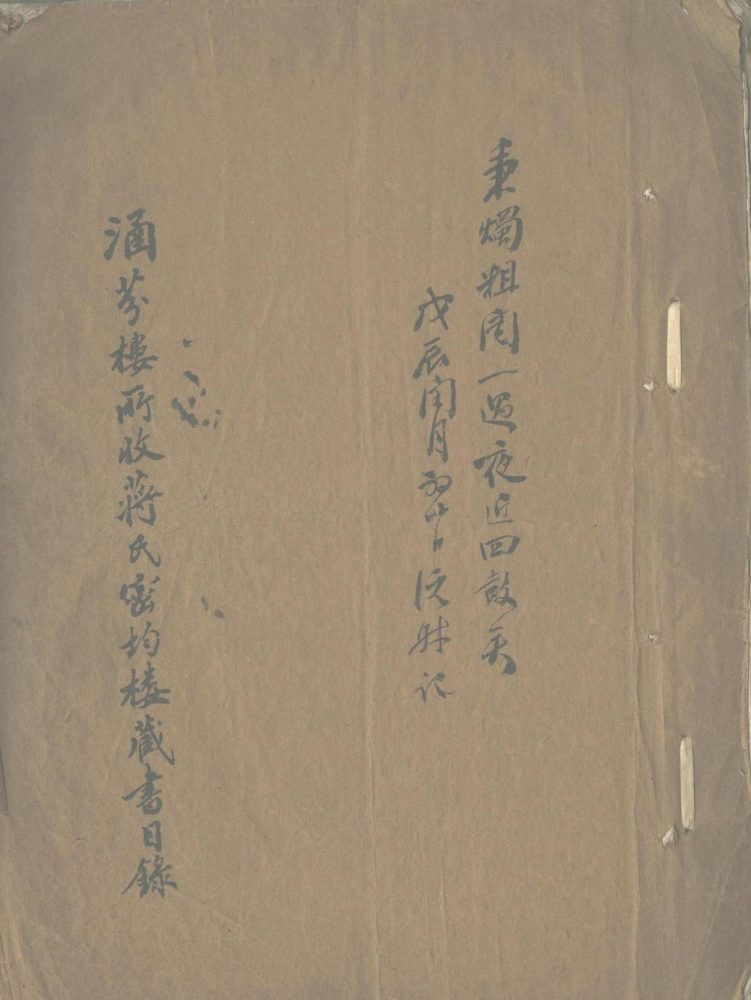 秉燭粗閱一過夜近四鼓矣
戊辰閏月初十日沅叔記
涵芬樓所收蔣氏密均樓藏書目錄